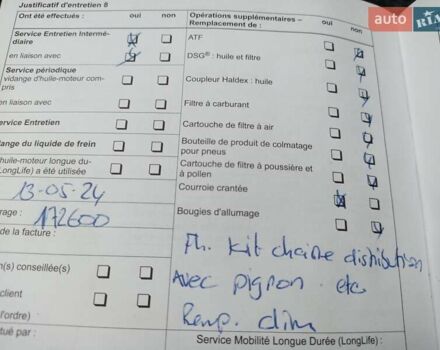 Justificatif d'entretien 8
Ont été effectués : oui non
Service Entretien Intermé-
diaire
en liaison avec
Service périodique
vidange d'huile-moteur com-
pris
en liaison avec
Service Entretien
dange du liquide de frein
huile-moteur longue du-
LongLife) a été utilisée
13-05-24
rage : 172600
de la facture :
n(s) conseillée(s)
client
l'ordre)
tué par :
Opérations supplémentaires –
Remplacement de : oui non
ATF
DSG® : huile et filtre
Coupleur Haldex : huile
Filtre à carburant
Cartouche de filtre à air
Bouteille de produit de colmatage
pour pneus
Cartouche de filtre à poussière et
à pollen
Courroie crantée
Bougies d'allumage
Kit chaine distribution
Avec pignon etc
Remp.
Service Mobilité Longue Durée (LongLife) :
auto RIA